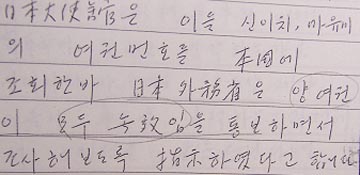 日本大使館은 이들 신이치, 마유미
의 여권번호를 本国에
조회한바 日本 外務省은 양 여권
이 모두 눅效임을 통보하면서
조사해보도록 指示하였다고 합니다